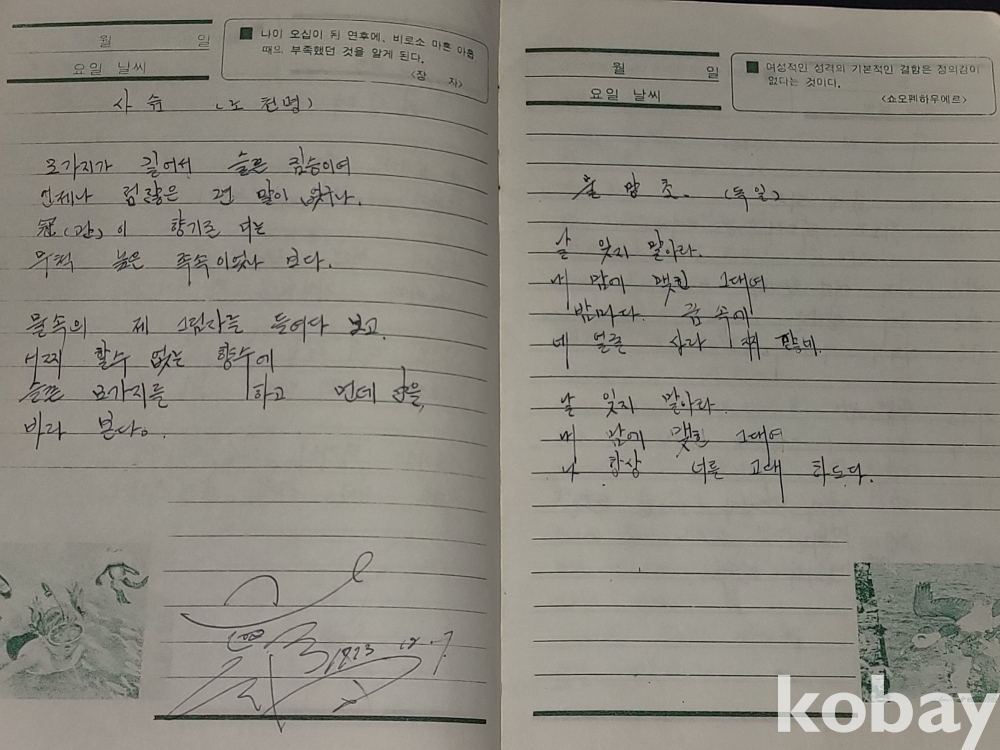 월 일
요일 날씨
나이 오십이 된 연후에, 비로소 마흔 아홉
때의 부족했던 것을 알게 된다.
<장 자>
사슴 (노천명)
모가지가 길어서 슬픈 짐승이여
언제나 점잖은 편 말이 없구나.
冠(관)이 향기로 너는
무척 높은 족속이었나 보다.
물속의 제 그림자를 들여다 보고
어찌 할수 없는 향수에
슬픈 모가지를 하고 먼데 산을
바라 본다.
월 일
요일 날씨
여성적인 성격의 기본적인 결함은 정의감이
없다는 것이다.
<쇼오펜하우에르>
물망초. (독일)
날 잊지 말아라.
내 맘에 맺힌 그대여
밤마다. 꿈 속에
네 얼굴
날 잊지 말아라
내 맘에 맺힌 그대여
나 항상 너를 고대 하도다.
kobay